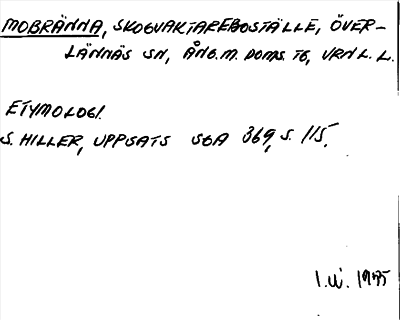 MOBRÄNNA, SKOGVAKTAREBOSTÄLLE, ÖVER-
LÄNNÄS SN, ÅNG.M. DOMS. TG, VRN L. L.
ETYMOLOGI.
S. HILLER, UPPSATS SOA 369, S. 115.
I.W. 1975